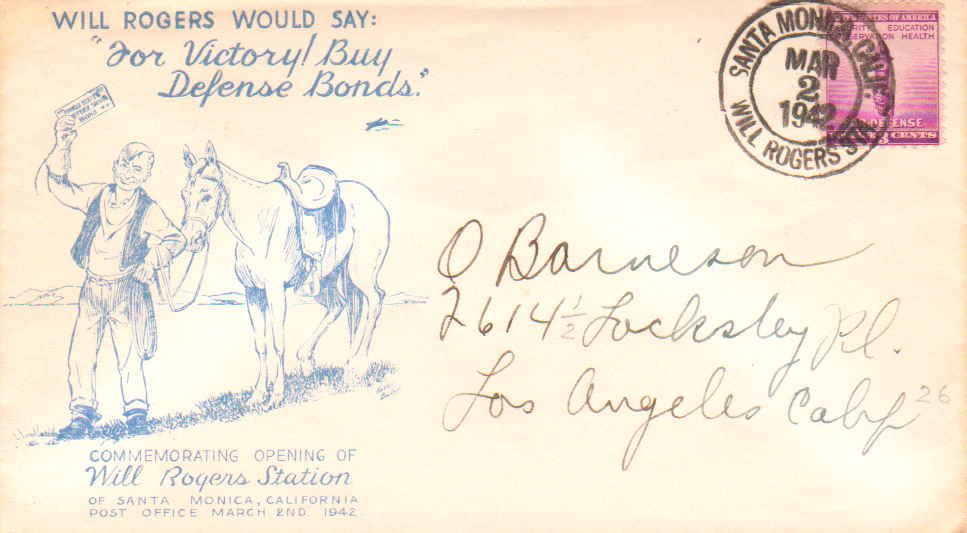 WILL ROGERS WOULD SAY:
"For Victory! Buy
Defense Bonds."
COMMEMORATING OPENING OF
Will Rogers Station
OF SANTA MONICA, CALIFORNIA
POST OFFICE MARCH 2ND. 1942.
SANTA MONICA, CALIF.
MAR
2
1942
WILL ROGERS STA.
STATES OF AMERICA
EDUCATION
HEALTH
DEFENSE
3 CENTS
O Barneson
2614½ Locksley Pl.
Los Angeles Calif
26